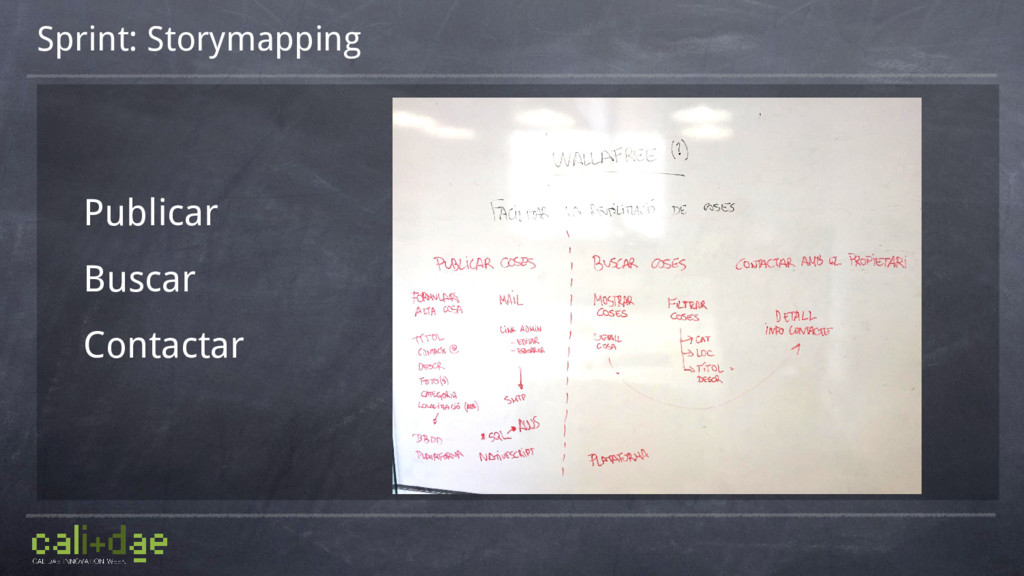 Sprint: Storymapping
Publicar
Buscar
Contactar
WALLAFREE (?)
FACILITAR LA REUTILITZACIÓ DE COSES
PUBLICAR COSES
FORMULARI
ALTA COSA
TÍTOL
CONTACTE @
DESCR
FOTO(S)
CATEGORIA
LOCALITZACIÓ
BBDD
PLATAFORMA
MAIL
LINK ADMIN
- EDITAR
- ESBORRAR
SMTP
* SQL → AWS
NATIVESCRIPT
BUSCAR COSES
MOSTRAR
COSES
DETALL
COSA
FILTRAR
COSES
→ CAT
→ LOC
→ TÍTOL
DESCR
PLATAFORMA
CONTACTAR AMB EL PROPIETARI
DETALL
INFO CONTACTE
cali+dae
CALIDAE INNOVATION WEEK